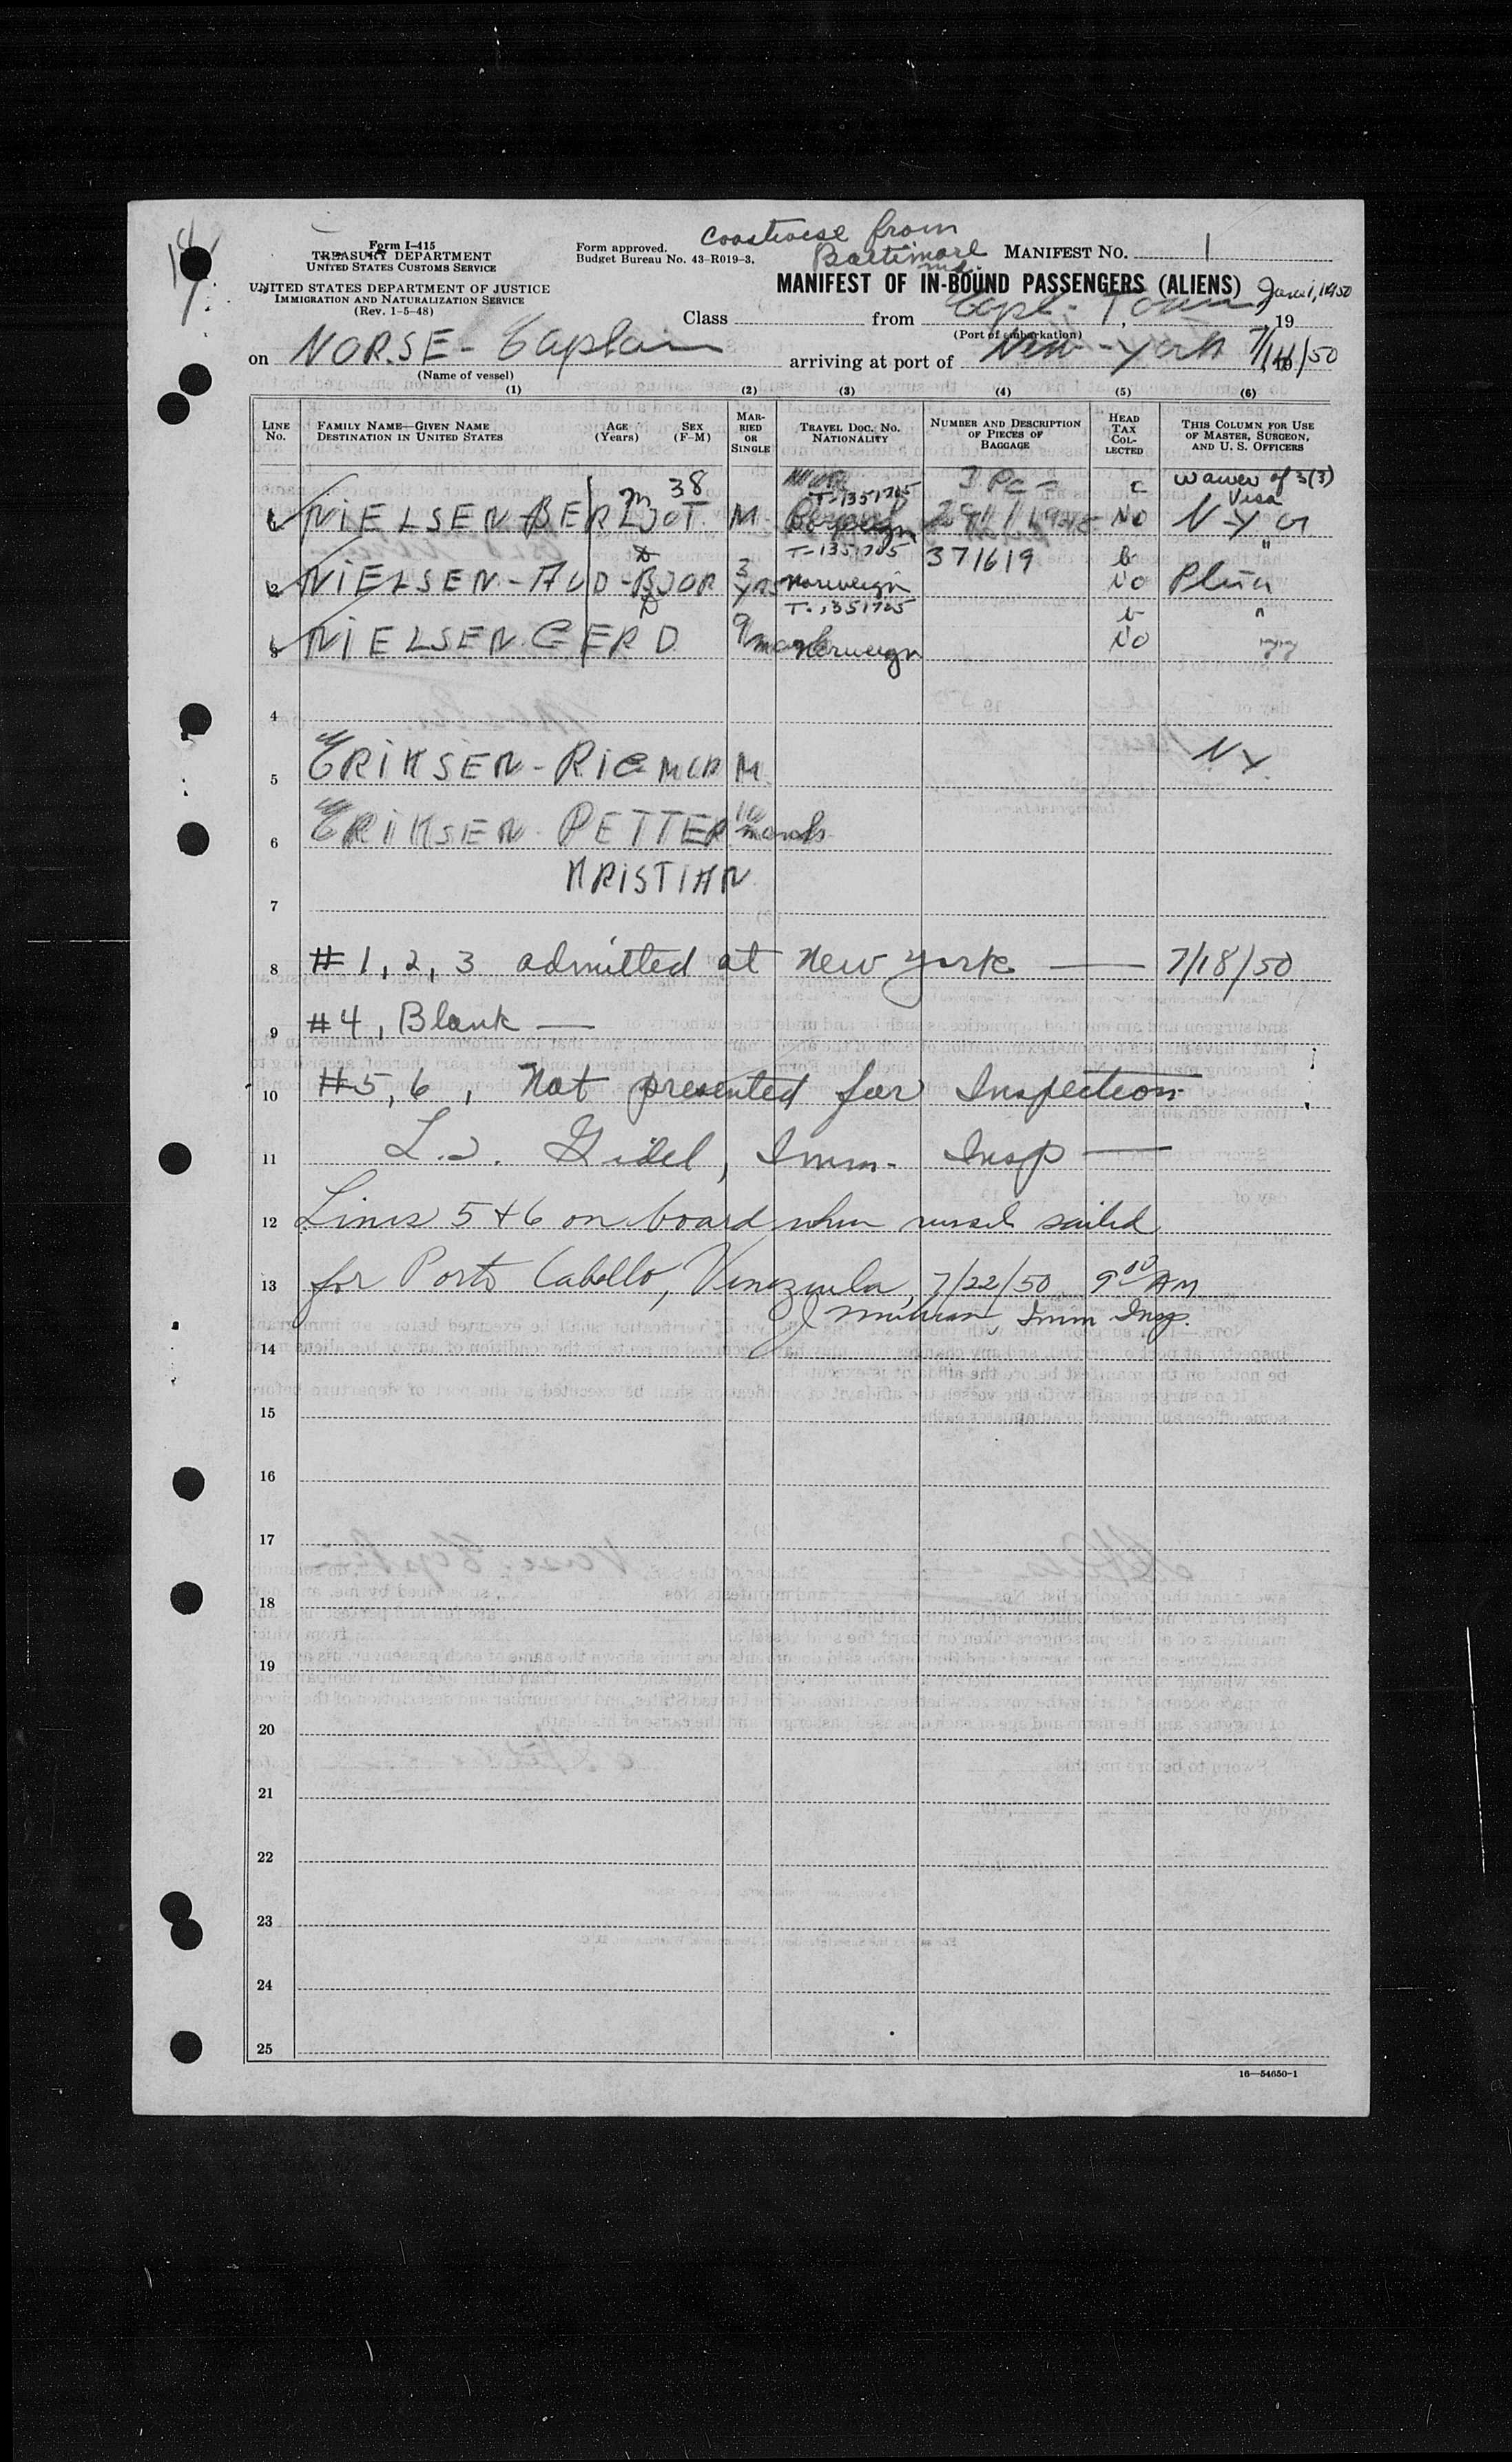 Form I-415
TREASURY DEPARTMENT
UNITED STATES CUSTOMS SERVICE
UNITED STATES DEPARTMENT OF JUSTICE
IMMIGRATION AND NATURALIZATION SERVICE
(Rev. 1-5-48)
Form approved.
Budget Bureau No. 43-R019-3.
Coastwise from
Baltimore
Md.
MANIFEST NO. 1
MANIFEST OF IN-BOUND PASSENGERS (ALIENS)
Class from Cape-Town, June 1, 1950, 19
(Port of embarkation)
on NORSE-Captain arriving at port of New-York 7/14/50, 19
(Name of vessel)
(1) (2) (3) (4) (5) (6)
LINE No. FAMILY NAME—GIVEN NAME DESTINATION IN UNITED STATES AGE (Years) SEX (F-M) MARRIED OR SINGLE TRAVEL DOC. NO. NATIONALITY NUMBER AND DESCRIPTION OF PIECES OF BAGGAGE HEAD TAX COLLECTED THIS COLUMN FOR USE OF MASTER, SURGEON, AND U. S. OFFICERS
38 T-1351705 3 Pc c waiver of 3(3) Visa
1 NIELSEN-BERLJOT. M. NO N-Y
T-1351705 371619 b "
2 NIELSEN-AUD-BJOR 3 yrs Norweign NO
T-1351705 b "
3 NIELSEN.GERD 9 Norweign NO
4
5 ERIKSEN-RIGMOR M. N.Y.
6 ERIKSEN-PETTER 10
KRISTIAN
7
8 #1, 2, 3 admitted at New York — 7/18/50
9 #4, Blank —
10 #5, 6, Not presented for Inspection
11 L.J. Gidel, Imm. Insp —
12 Lines 5 & 6 on board when vessel sailed
13 for Porto Cabello, Venezuela, 7/22/50 9 00 AM
Imm Insp.
14
15
16
17
18
19
20
21
22
23
24
25
16—54650-1